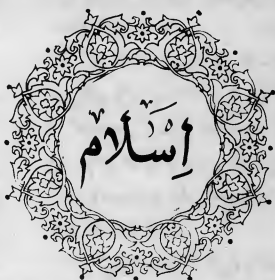 إِسْلَام